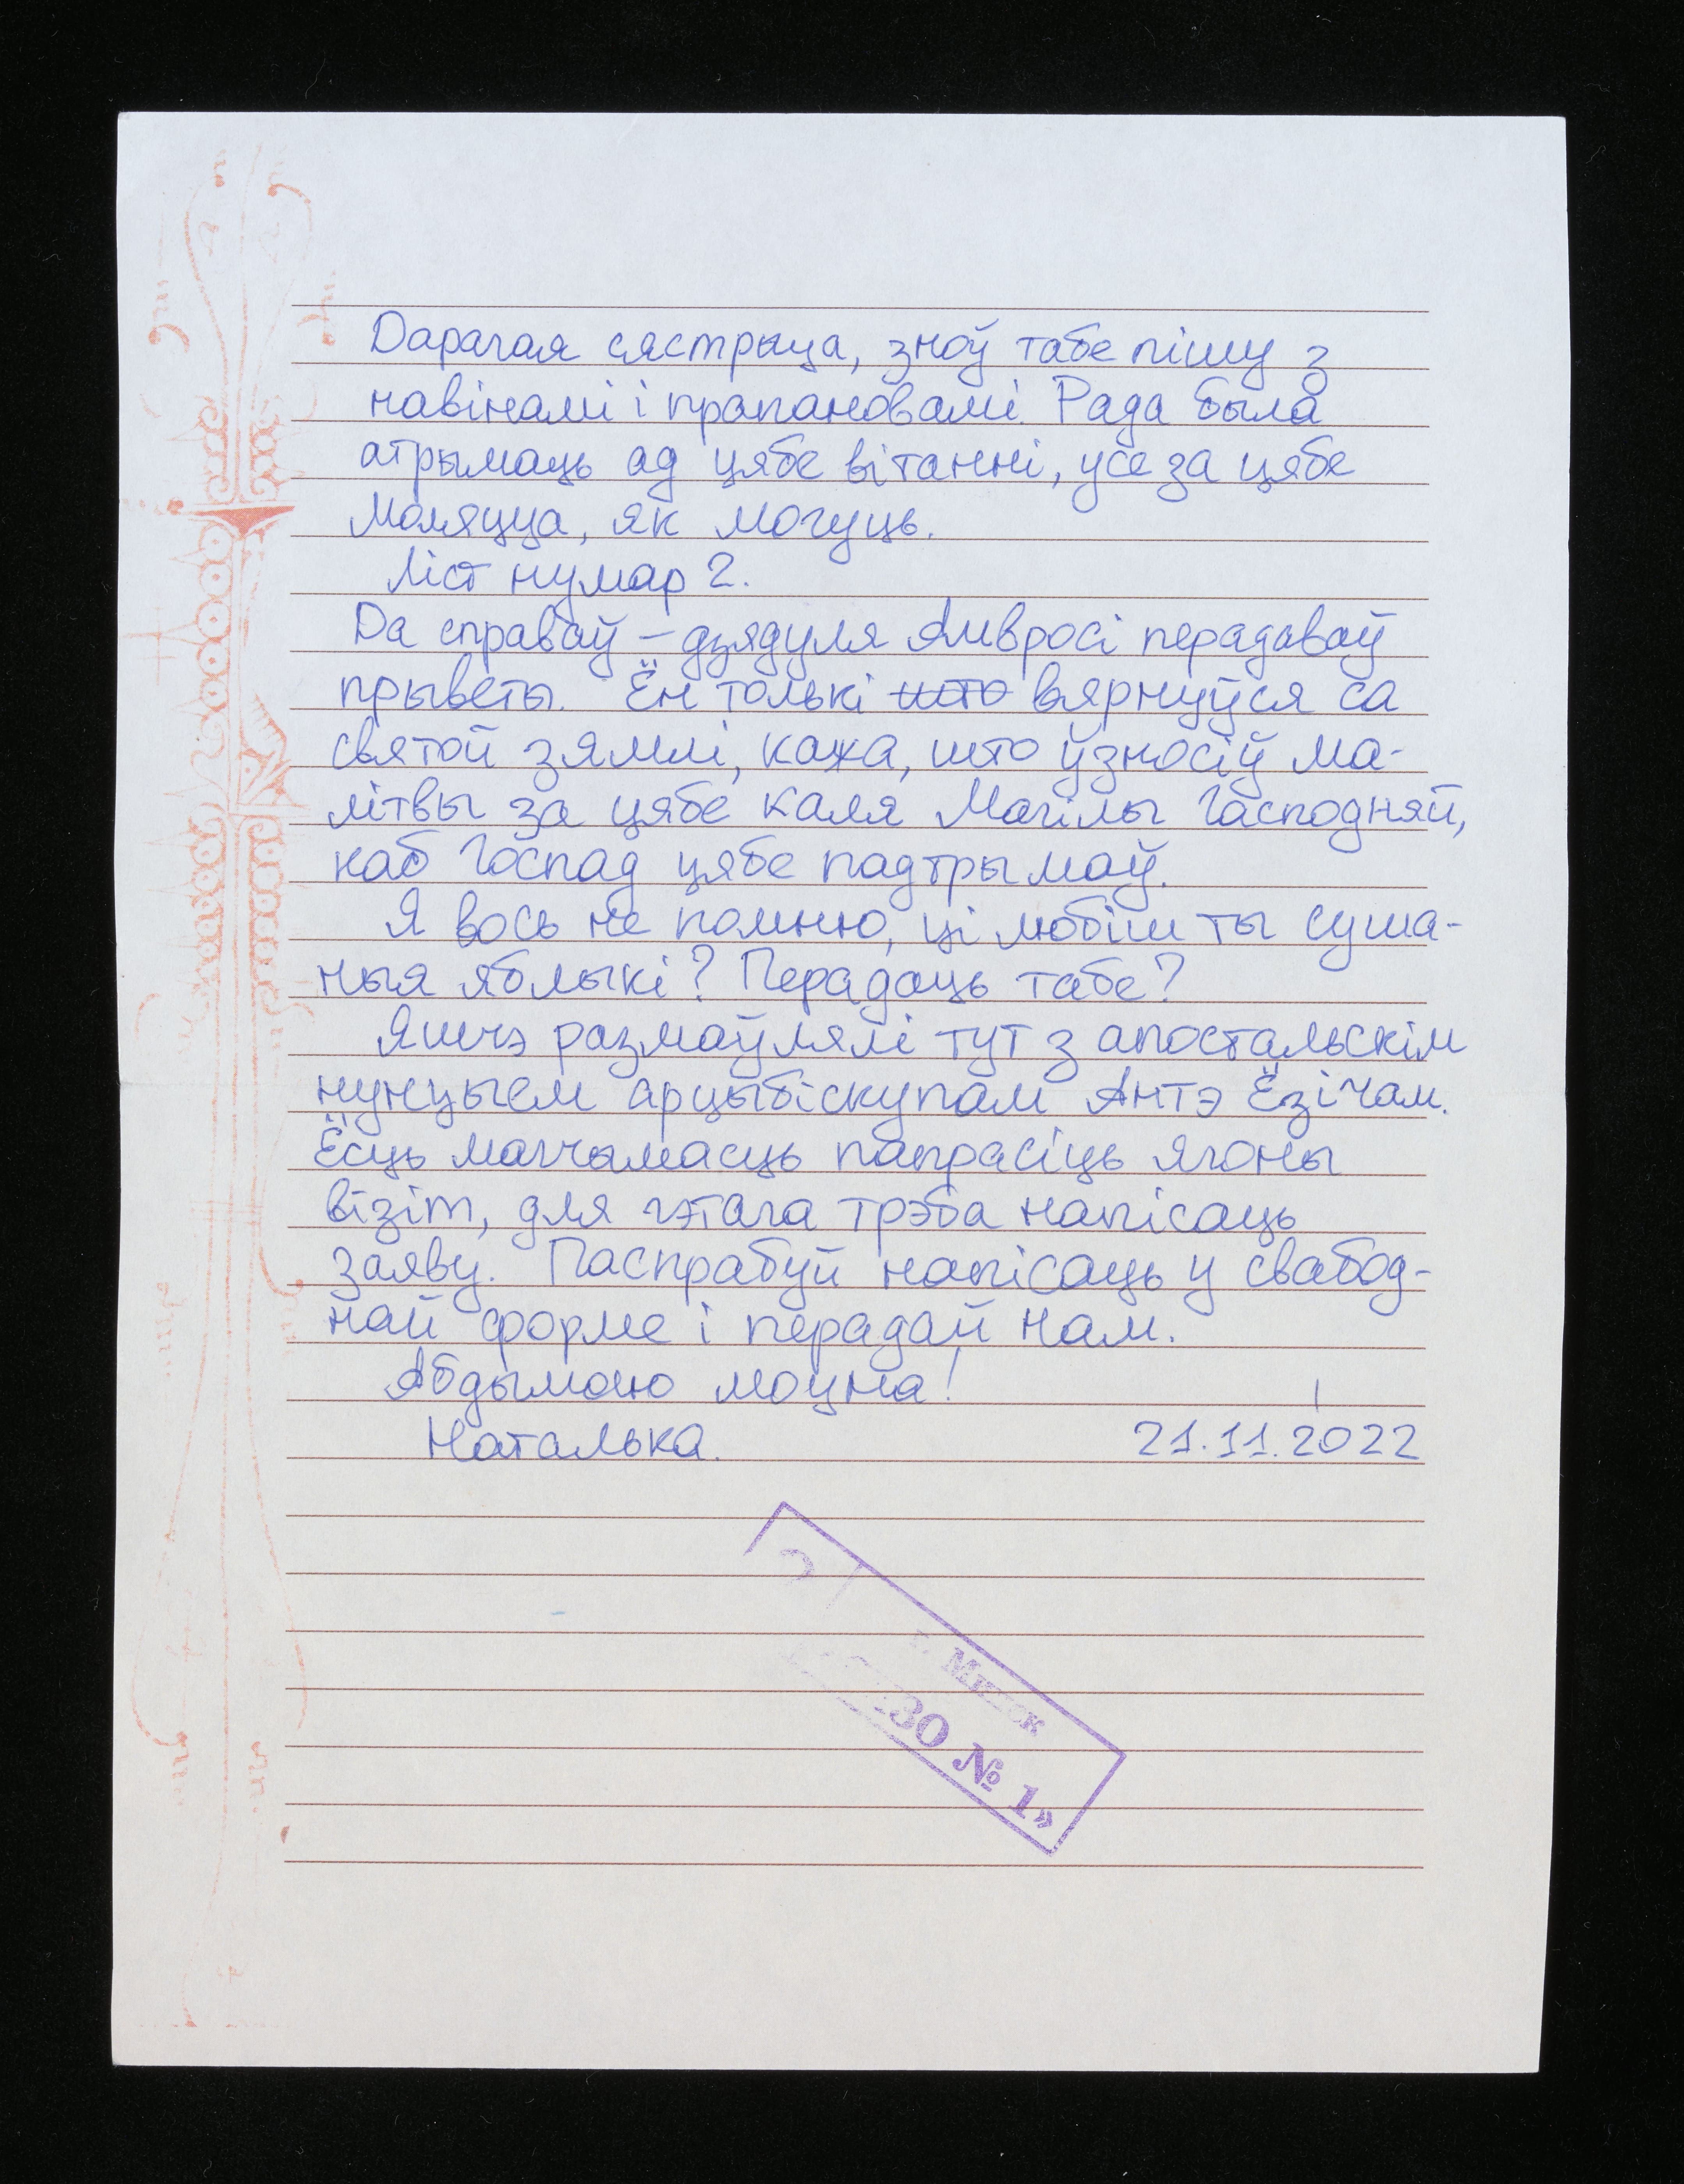 Дарагая сястрыца, зноў табе пішу з
навінамі і прапановамі. Рада была
атрымаць ад цябе вітанні, усе за цябе
моляцца, як могуць.
Ліст нумар 2.
Да справаў – дзядуля Амвросі перадаваў
прыветы. Ён толькі што вярнуўся са
святой зямлі, кажа, што ўзносіў ма-
літвы за цябе каля Магілы Гасподняй,
каб Госпад цябе падтрымаў.
Я вось не помню, ці любіш ты суша-
ныя яблыкі? Перадаць табе?
Яшчэ размаўлялі тут з апостальскім
нунцыем арцыбіскупам Антэ Ёзічам.
Ёсць магчымасць папрасіць ягоны
візіт, для гэтага трэба напісаць
заяву. Паспрабуй напісаць у свабод-
най форме і перадай нам.
Абдымаю моцна!
Наталька. 21.11.2022
г. Минск
ИЗО № 1»